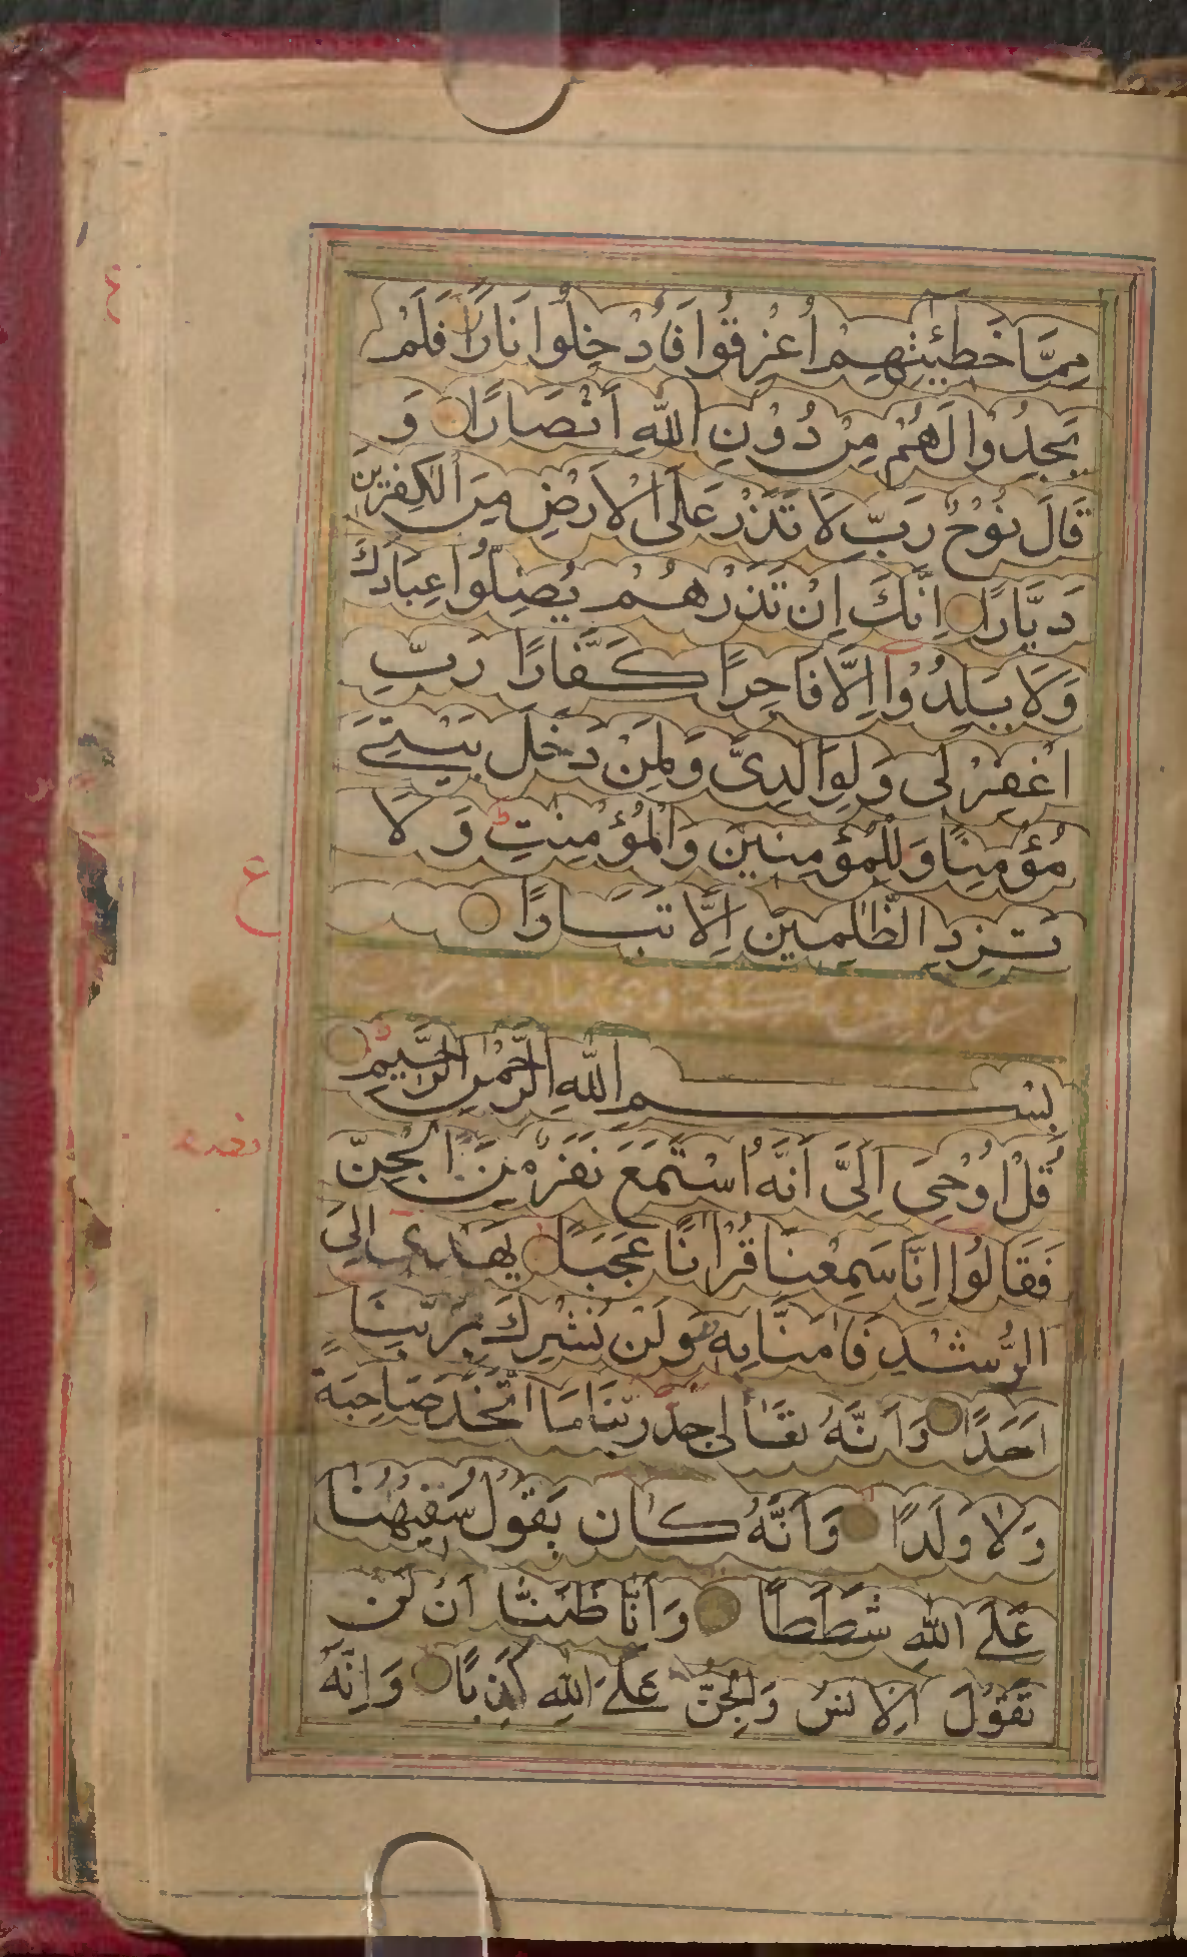 مِمَّا خَطِيْٓئٰتِهِمْ اُغْرِقُوْا فَاُدْخِلُوْا نَارًا فَلَمْ
يَجِدُوْا لَهُمْ مِنْ دُوْنِ اللّٰهِ اَنْصَارًا وَ
قَالَ نُوْحٌ رَبِّ لَا تَذَرْ عَلَى الْاَرْضِ مِنَ الْكٰفِرِيْنَ
دَيَّارًا اِنَّكَ اِنْ تَذَرْهُمْ يُضِلُّوْا عِبَادَكَ
وَلَا يَلِدُوْا اِلَّا فَاجِرًا كَفَّارًا رَبِّ
اغْفِرْ لِى وَلِوَالِدَىَّ وَلِمَنْ دَخَلَ بَيْتِىَ
مُؤْمِنًا وَلِلْمُؤْمِنِيْنَ وَالْمُؤْمِنٰتِ ط وَلَا
تَزِدِ الظّٰلِمِيْنَ اِلَّا تَبَارًا
ع
سورة الجن
بِسْمِ اللّٰهِ الرَّحْمٰنِ الرَّحِيْمِ
قُلْ اُوْحِىَ اِلَىَّ اَنَّهُ اسْتَمَعَ نَفَرٌ مِنَ الْجِنِّ
فَقَالُوْا اِنَّا سَمِعْنَا قُرْاٰنًا عَجَبًا يَهْدِى اِلَى
الرُّشْدِ فَاٰمَنَّا بِهٖ وَلَنْ نُشْرِكَ بِرَبِّنَا
اَحَدًا وَاَنَّهُ تَعَالٰى جَدُّ رَبِّنَا مَا اتَّخَذَ صَاحِبَةً
وَلَا وَلَدًا وَاَنَّهُ كَانَ يَقُوْلُ سَفِيْهُنَا
عَلَى اللّٰهِ شَطَطًا وَاَنَّا ظَنَنَّا اَنْ لَنْ
تَقُوْلَ الْاِنْسُ وَالْجِنُّ عَلَى اللّٰهِ كَذِبًا وَاَنَّهُ